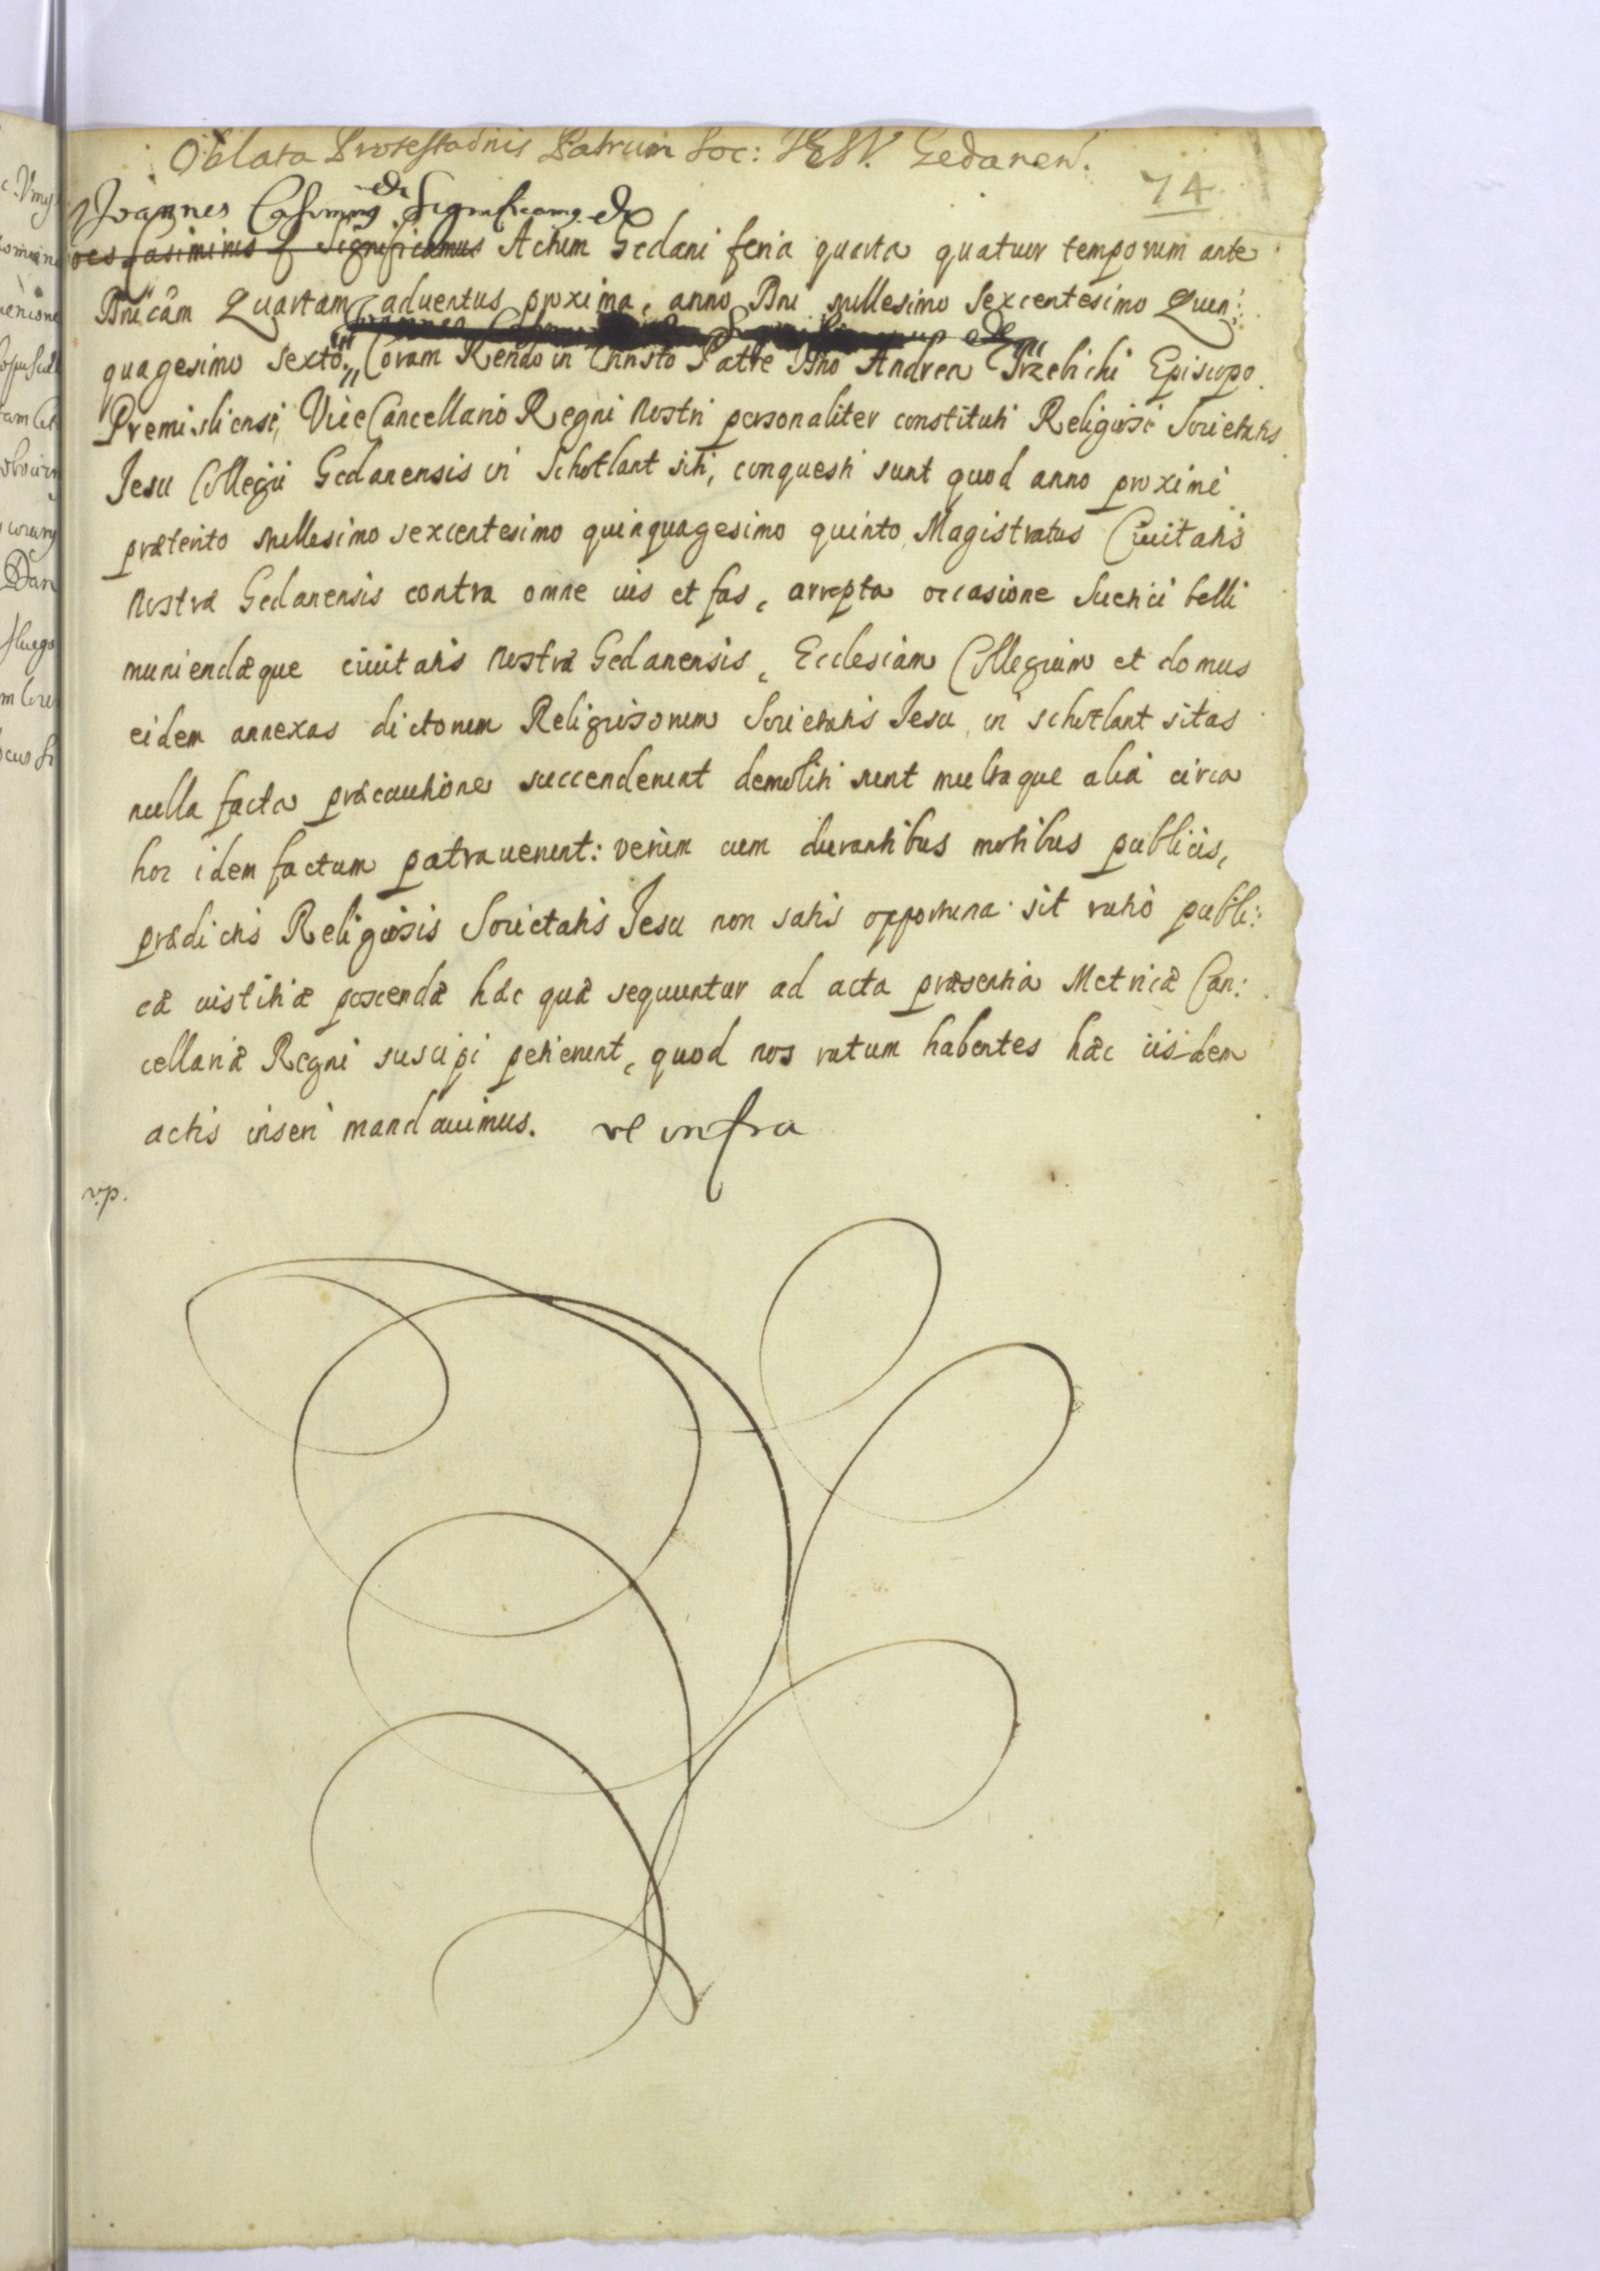 Oblata Protestaonis Patrum Soc: IESV. Gedanen.
74
Joannes Casimirus etc Significamus etc
oes Casimirus Significamus Actum Gedani feria quarta quatuor temporum ante
Dnicam Quartam adventus proxima, anno Dni millesimo sexcentesimo Quin:
quagesimo sexto. Coram Rendo in Christo Patre Dno Andrea Trzebicki Episcopo
Premisliensi, ViceCancellario Regni nostri personaliter constituti Religiosi Societatis
Jesu Collegii Gedanensis in Schotlant siti, conquesti sunt quod anno proxime
præterito millesimo sexcentesimo quinquagesimo quinto, Magistratus Civitatis
nostræ Gedanensis contra omne ius et fas, arrepta occasione Suetici belli
muniendæque civitatis nostræ Gedanensis, Ecclesiam Collegium et domus
eidem annexas dictorum Religiosorum Societatis Jesu in Schotlant sitas
nulla facta præcautione succenderunt demoliti sunt multaque alia circa
hoc idem factum patraverunt: verum cum durantibus motibus publicis,
prædictis Religiosis Societatis Jesu non satis opportuna sit ratio publi:
cæ iustitiæ poscendæ hæc quæ sequuntur ad acta præsentia Metricæ Can:
cellariæ Regni suscipi petierunt, quod nos ratum habentes hæc iisdem
actis inseri mandavimus. vt infra
v.p.